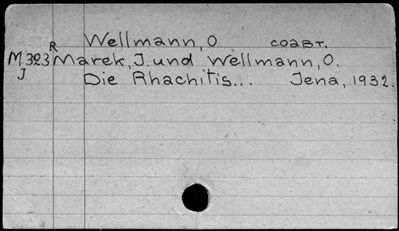 Wellmann, O соавт.
R
M323 Marek, J. und Wellmann, O.
J Die Rhachitis... Jena, 1932.